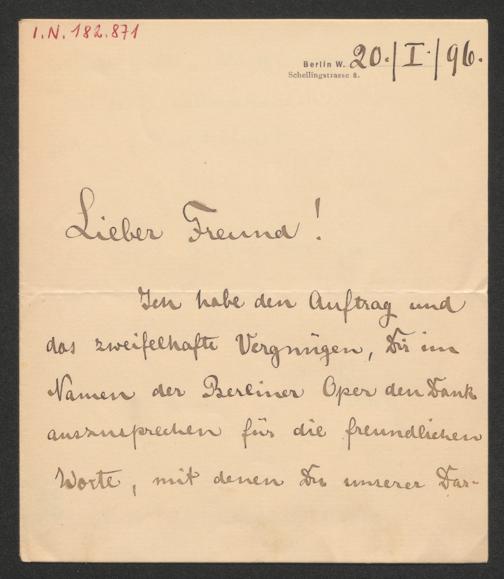 I.N. 182.871
Berlin W. 20./I./96.
Schellingstrasse 8.
Lieber Freund!
Ich habe den Auftrag und
das zweifelhafte Vergnügen, Dir im
Namen der Berliner Oper den Dank
auszusprechen für die freundlichen
Worte, mit denen Du unserer Dar-